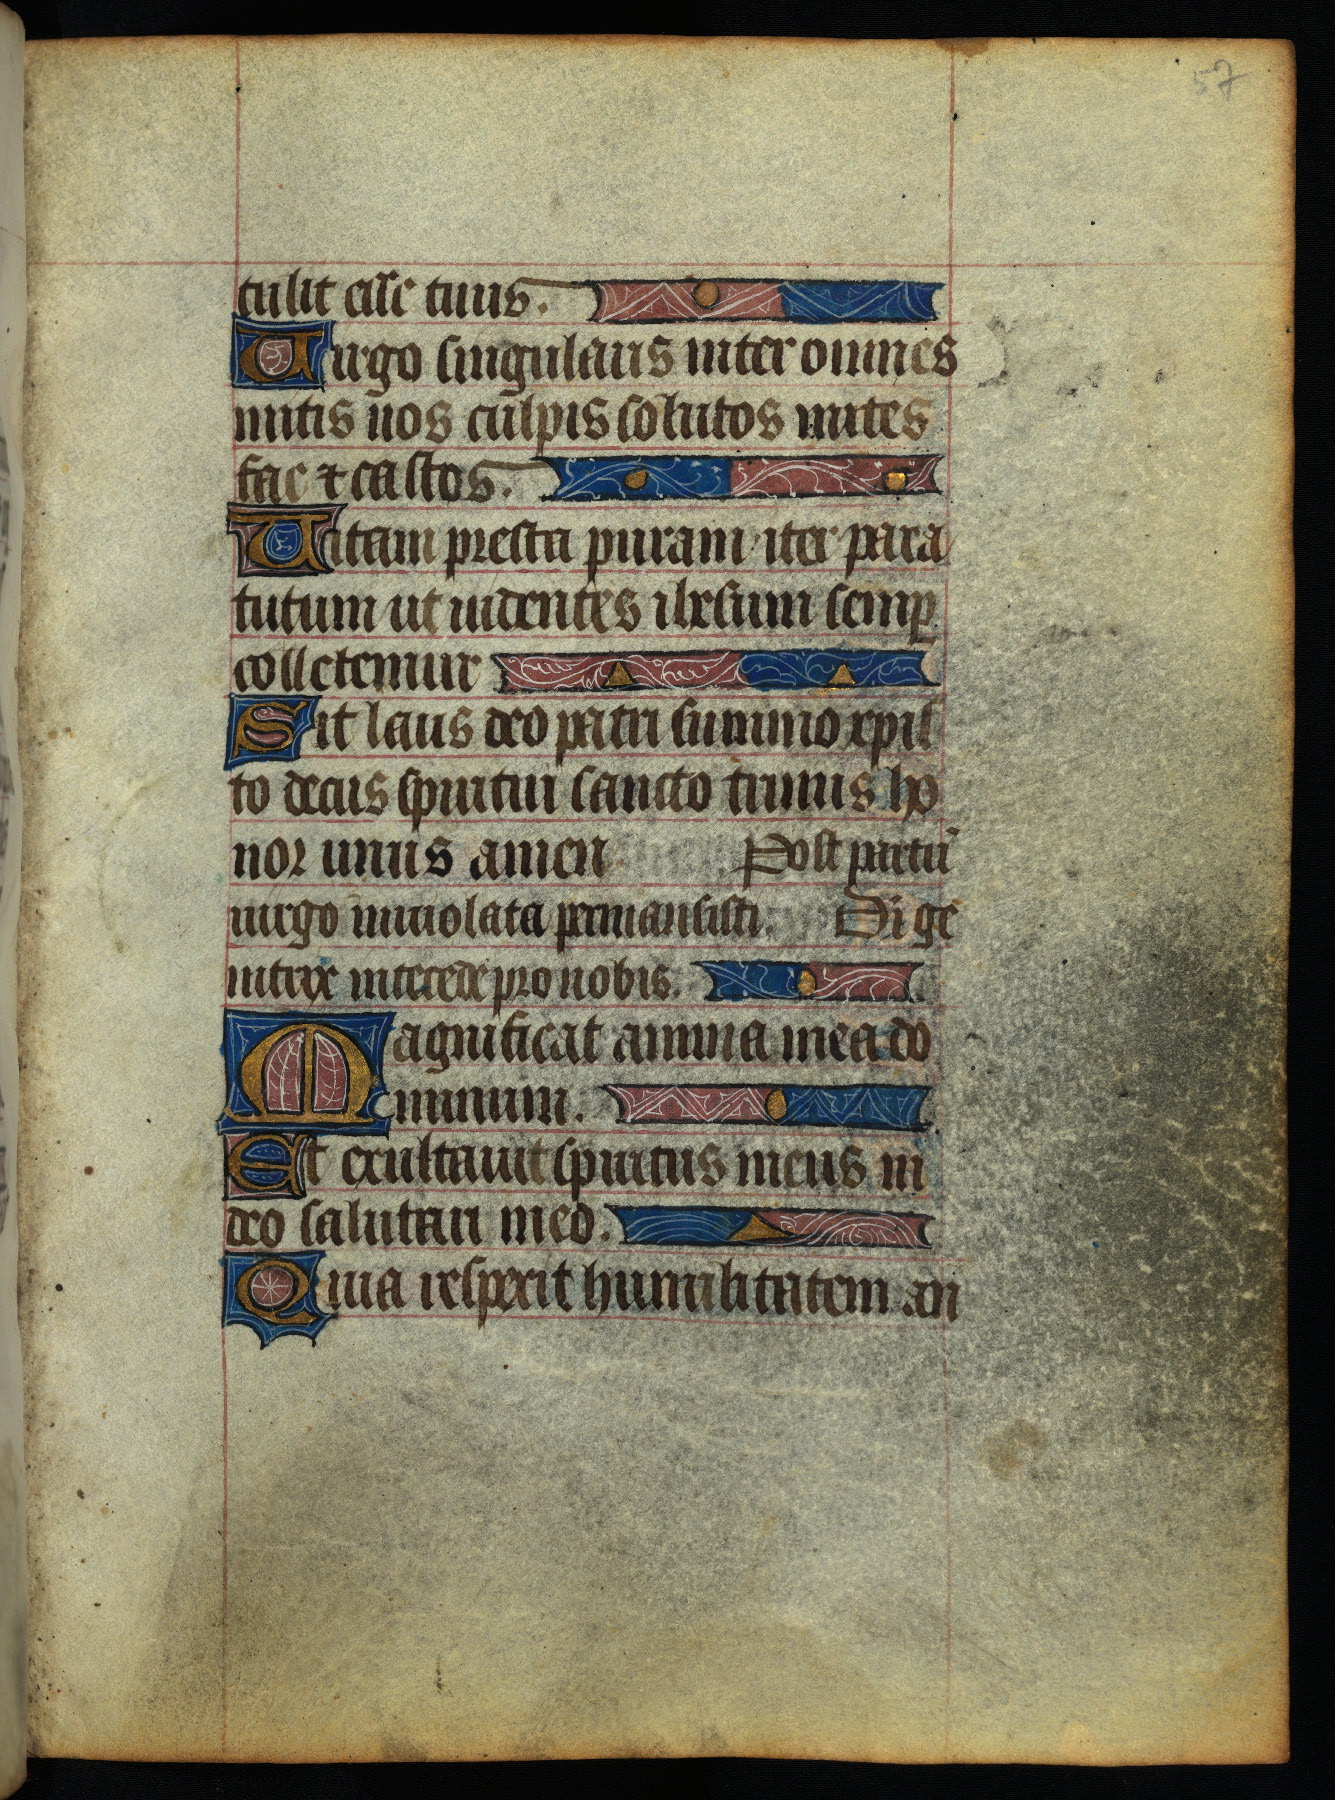 57
tulit esse tuus.
Virgo singularis inter omnes
mitis nos culpis solutos mites
fac ⁊ castos.
Vitam presta puram iter para
tutum ut uidentes ihesum semp
colletemur
Sit laus deo patri summo xpis
to decus spiritui sancto trinus ho
nor unus amen Post partū
uirgo inuiolata permansisti. Dī ge
nitrix intercede pro nobis.
Magnificat anima mea do
minum.
Et exultauit spiritus meus in
deo salutari meo.
Quia respexit humilitatem an